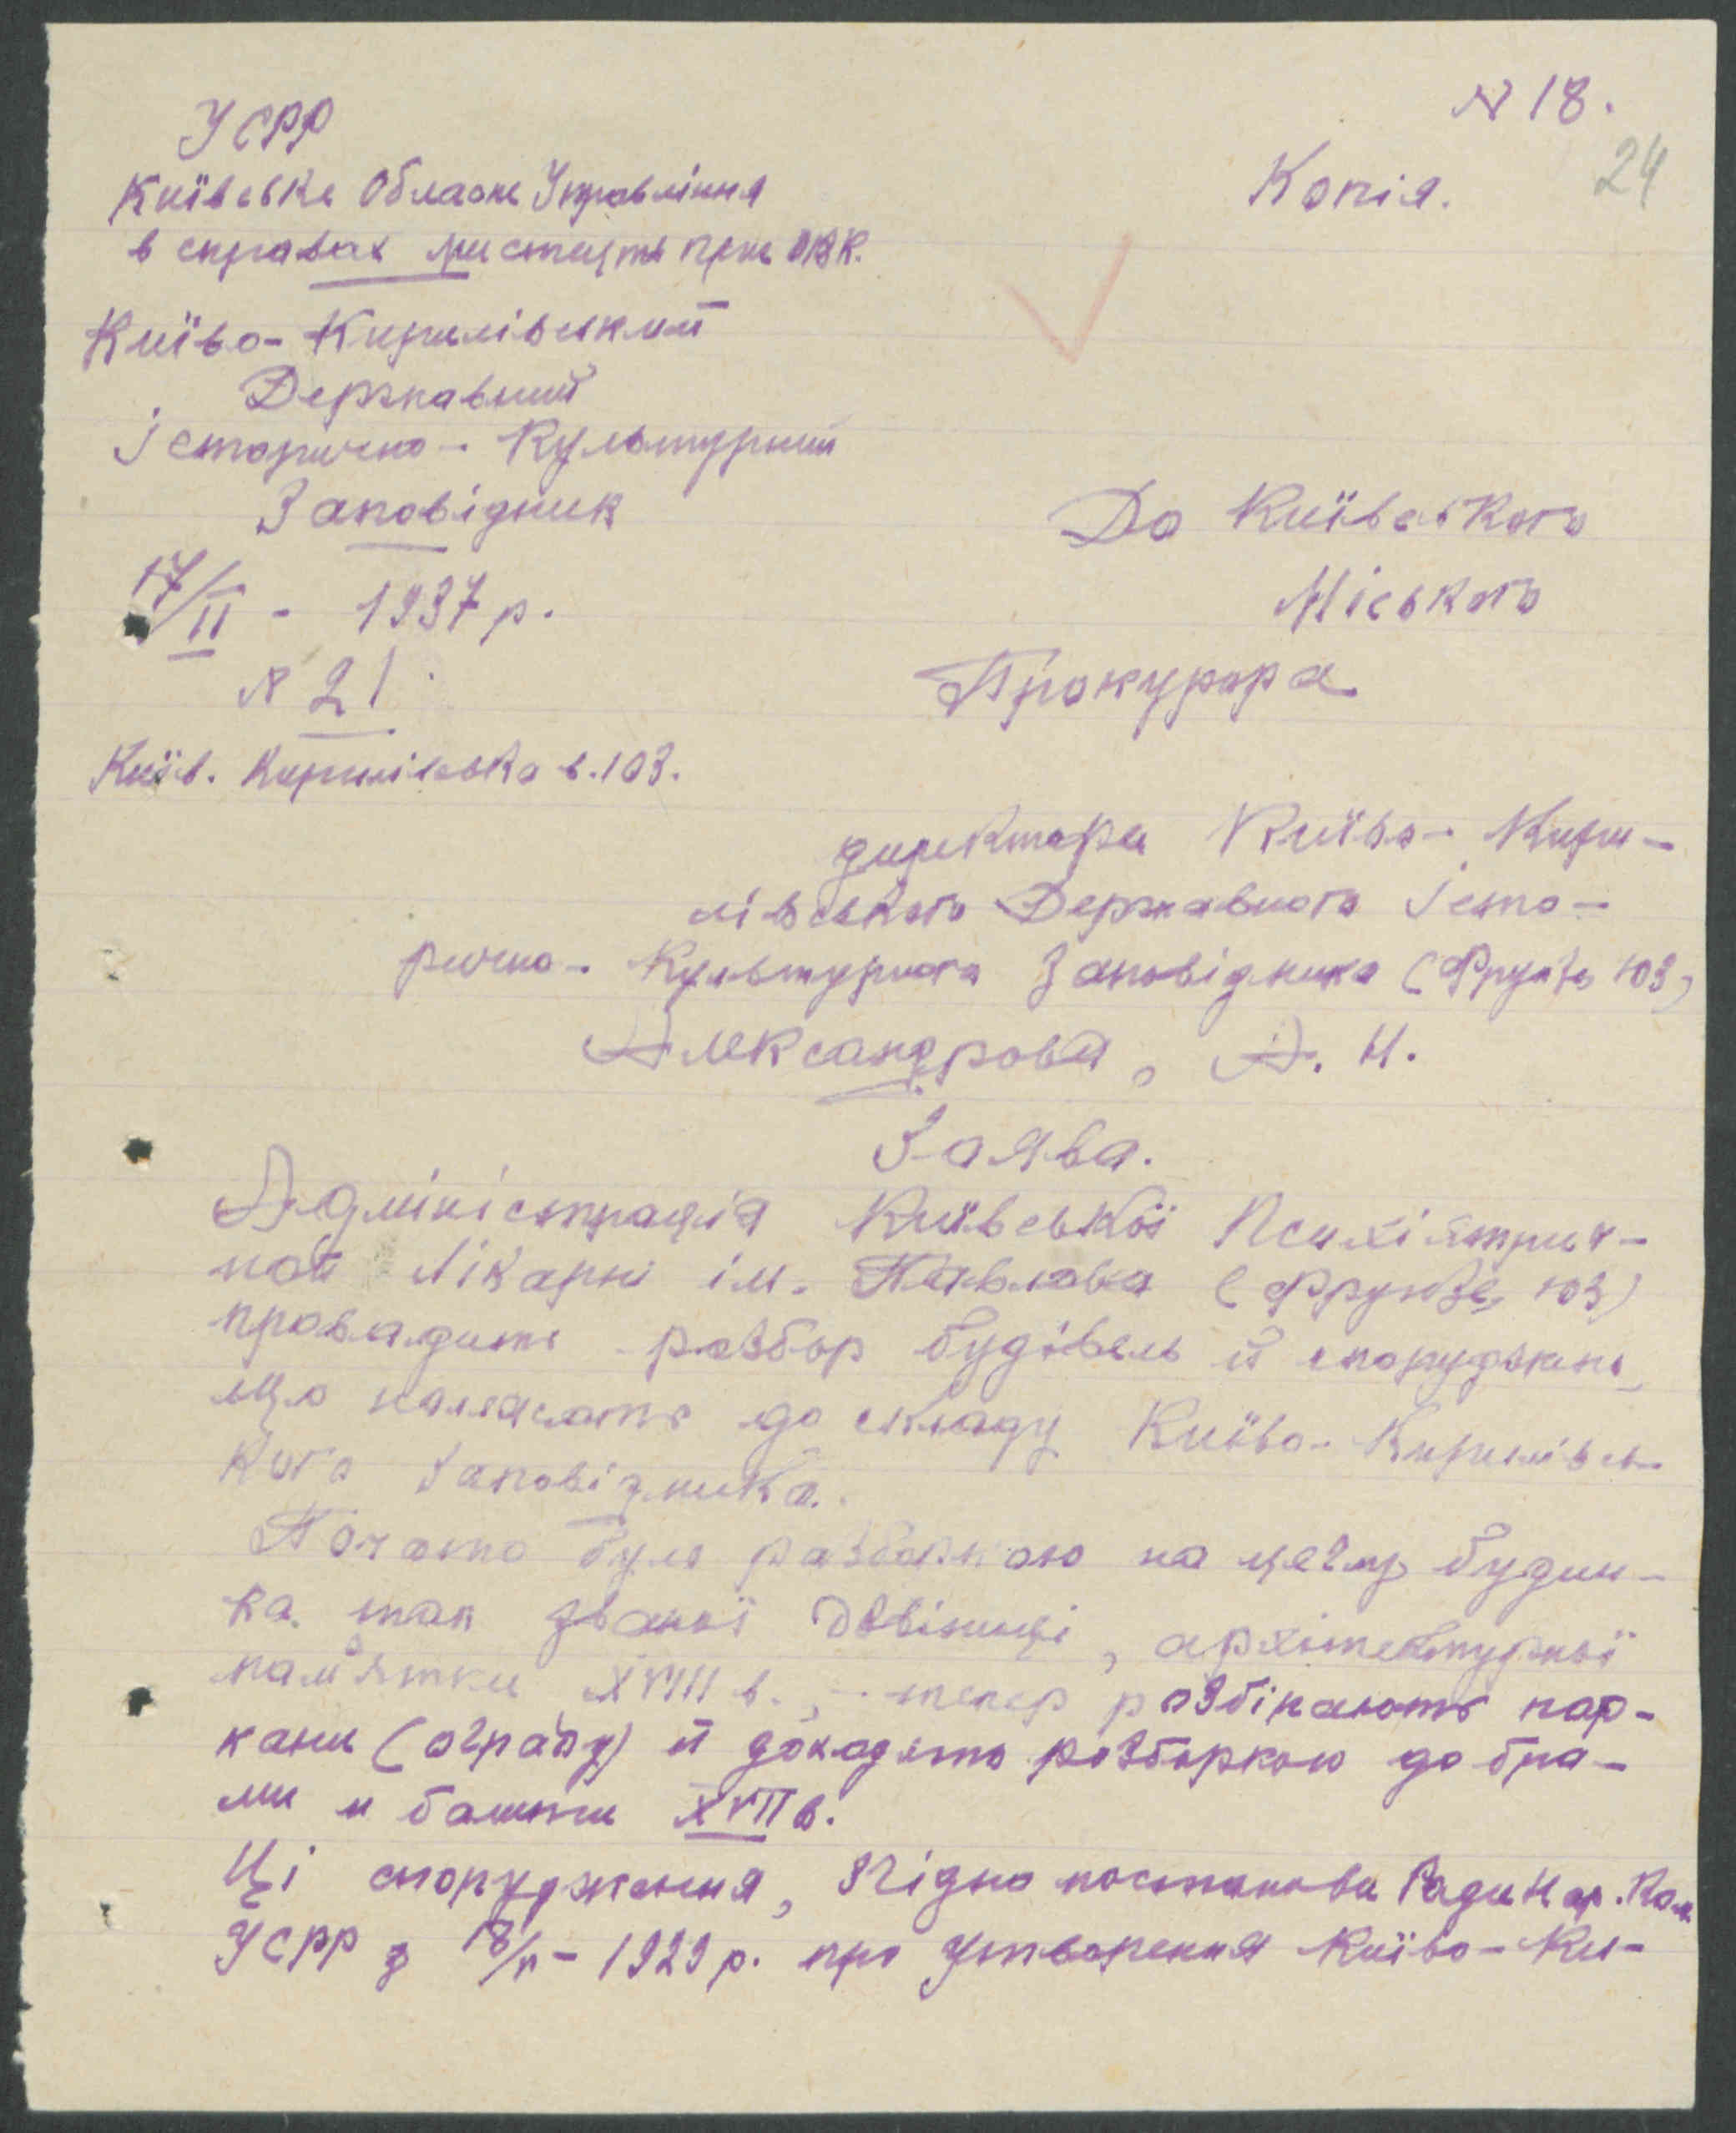 N 18.
24
УСРР
Копія.
Київське Обласне Управління
в справах мистецтв при ОВК.
Київо-Кирилівський
Державний
Історично-Культурний
Заповідник
До Київського
Міського
Прокурора
17/II - 1937 р.
N 21
Київ. Кирилівська в. 103.
директора Київо-Кири-
лівського Державного Істо-
рично-Культурного Заповідника (Фрунзе 103)
Александрова, А. Н.
Заява.
Адміністрація Київської Психіятрич-
ной Лікарні ім. Павлова (Фрунзе, 103)
провадить розбор будівель й споруджень
що належать до складу Київо-Кирилівсь-
кого Заповідника.
Почато було разборкою на цеглу будин-
ка так званої Дзвіниці, архітектурної
пам'ятки XVIII в., - тепер розбірають пар-
кани (ограду) й доходять розборкою до бра-
ми и башти XVII в.
Ці спорудження, згідно постанови Ради Нар. Ком.
УСРР з 1929 р. про утворення Київо-Ки-